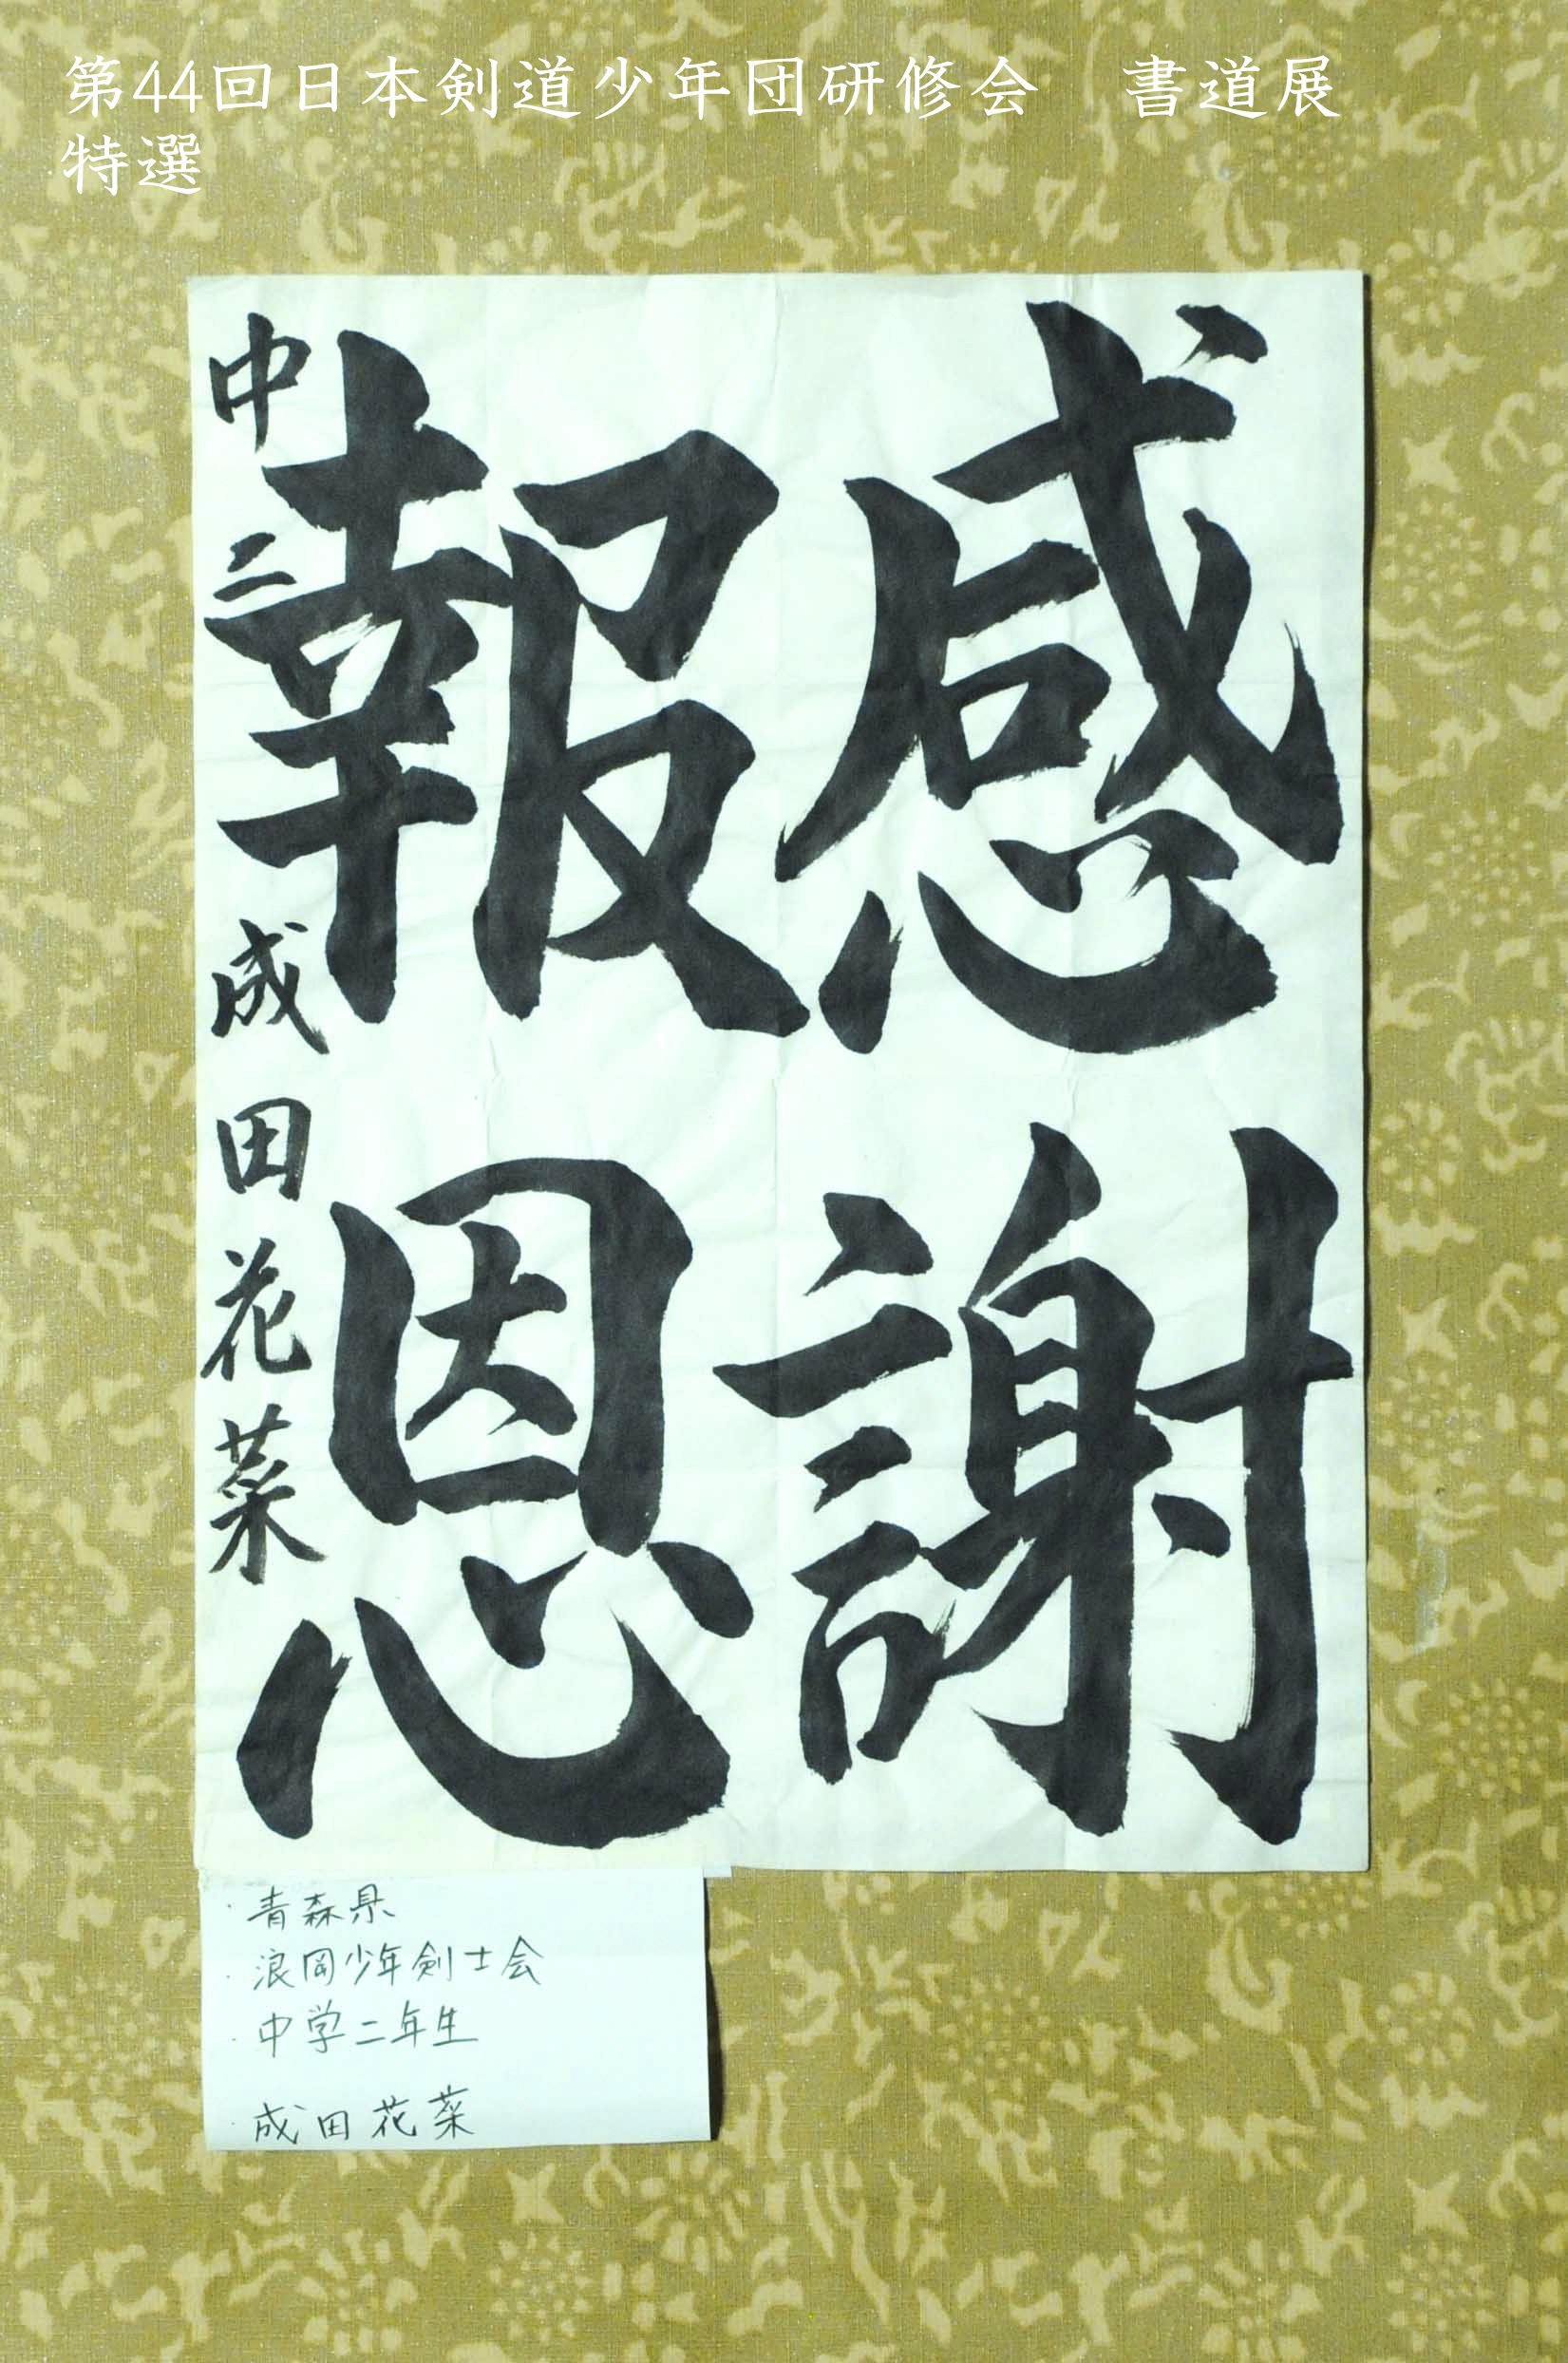 第44回日本剣道少年団研修会　書道展
特選
感謝
報恩
中二 成田花菜
・青森県
・浪岡少年剣士会
・中学二年生
・成田花菜